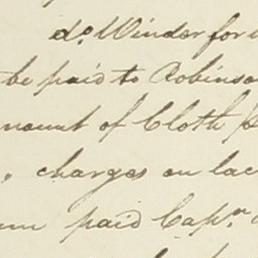 do. Winder for
be paid to Robinson
mount of Cloth
charges on lac
paid Capn.